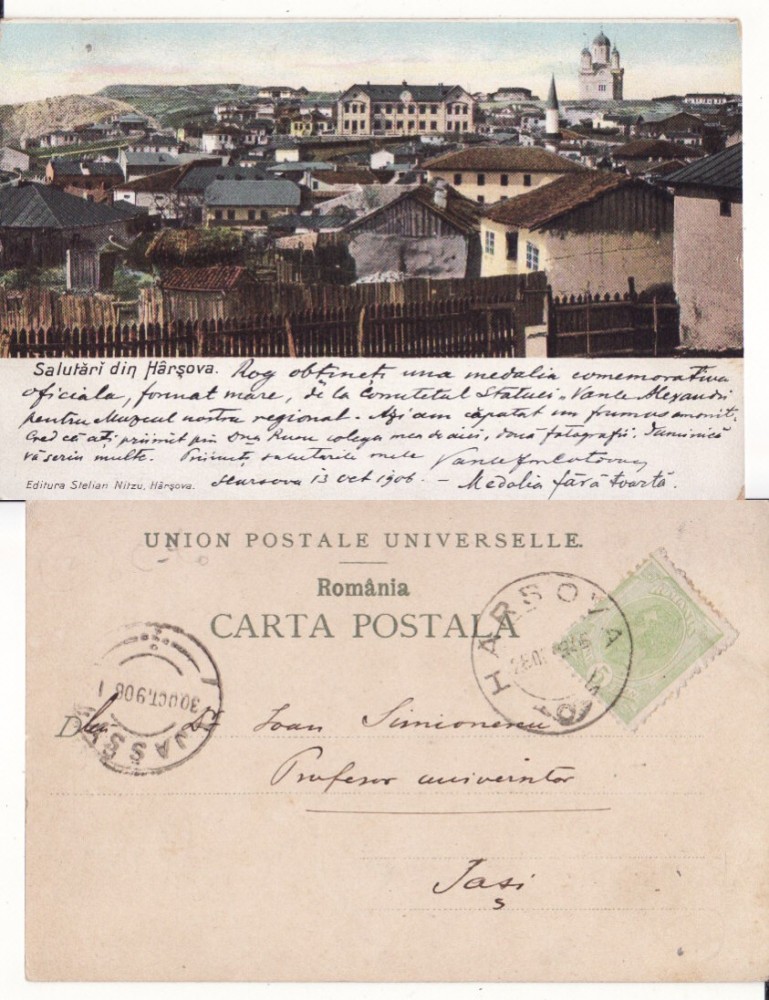 Salutări din Hârşova. Rog obţineţi una medalia comemorativa
oficiala, format mare, de la Comitetul Statuei "Vasile Alexandri
pentru Muzeul nostru regional. Azi am căpatat un frumos amonit.
Cred că aţi priimit prin Dna Rusu colega mea de aici, două fotografii. Duminică
vă scriu multe. Priimiţi salutările mele
Hârsova 13 Oct 1906. – Medalia fără toartă.
Editura Stelian Nitzu, Hârşova.
UNION POSTALE UNIVERSELLE.
România
CARTA POSTALĂ
HARSOVA
JASSY
30 OCT. 906
5
D lui D. Ioan Simionescu
Profesor universitar
Iaşi